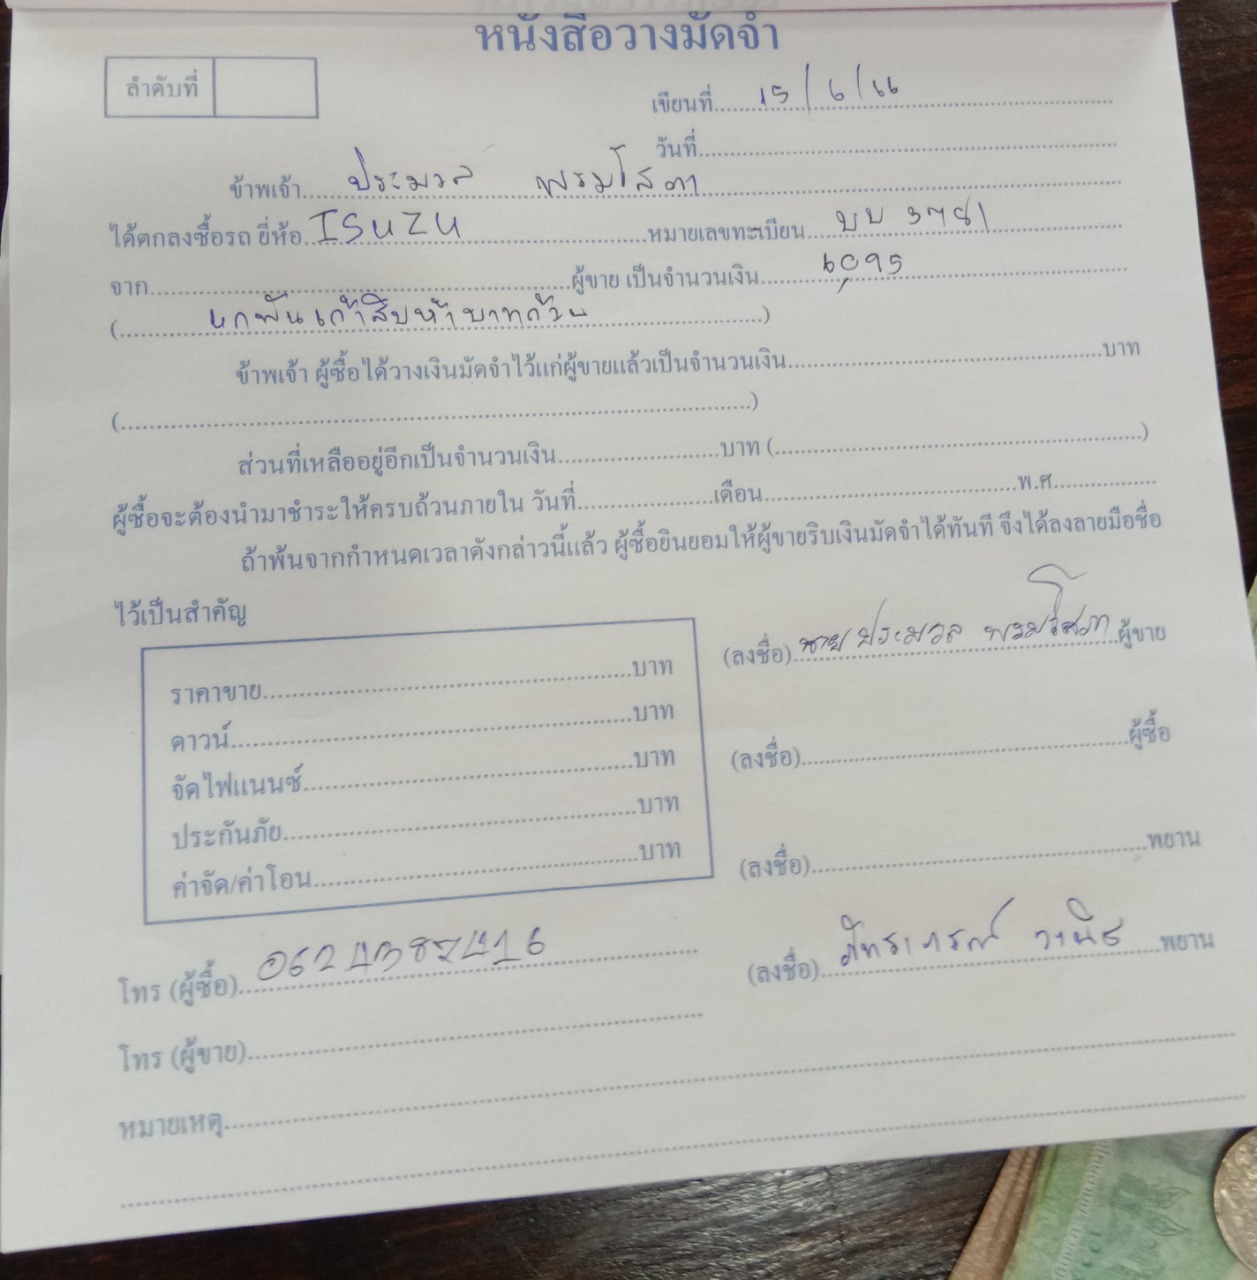 หนังสือวางมัดจำ
ลำดับที่
เขียนที่ 15/6/66
วันที่
ข้าพเจ้า ประมวล พรมโสภา
ได้ตกลงซื้อรถ ยี่ห้อ ISUZU หมายเลขทะเบียน บบ 3781
จาก ผู้ขาย เป็นจำนวนเงิน 6,095
( หกพันเก้าสิบห้าบาทถ้วน )
ข้าพเจ้า ผู้ซื้อได้วางเงินมัดจำไว้แก่ผู้ขายแล้วเป็นจำนวนเงิน บาท
( )
ส่วนที่เหลืออยู่อีกเป็นจำนวนเงิน บาท ( )
ผู้ซื้อจะต้องนำมาชำระให้ครบถ้วนภายใน วันที่ เดือน พ.ศ.
ถ้าพ้นจากกำหนดเวลาดังกล่าวนี้แล้ว ผู้ซื้อยินยอมให้ผู้ขายริบเงินมัดจำได้ทันที จึงได้ลงลายมือชื่อ
ไว้เป็นสำคัญ
ราคาขาย บาท
ดาวน์ บาท
จัดไฟแนนซ์ บาท
ประกันภัย บาท
ค่าจัด/ค่าโอน บาท
(ลงชื่อ) นายประมวล พรมโสภา ผู้ขาย
(ลงชื่อ) ผู้ซื้อ
(ลงชื่อ) พยาน
(ลงชื่อ) ภัทราภรณ์ วานิช พยาน
โทร (ผู้ซื้อ) 0624387416
โทร (ผู้ขาย)
หมายเหตุ